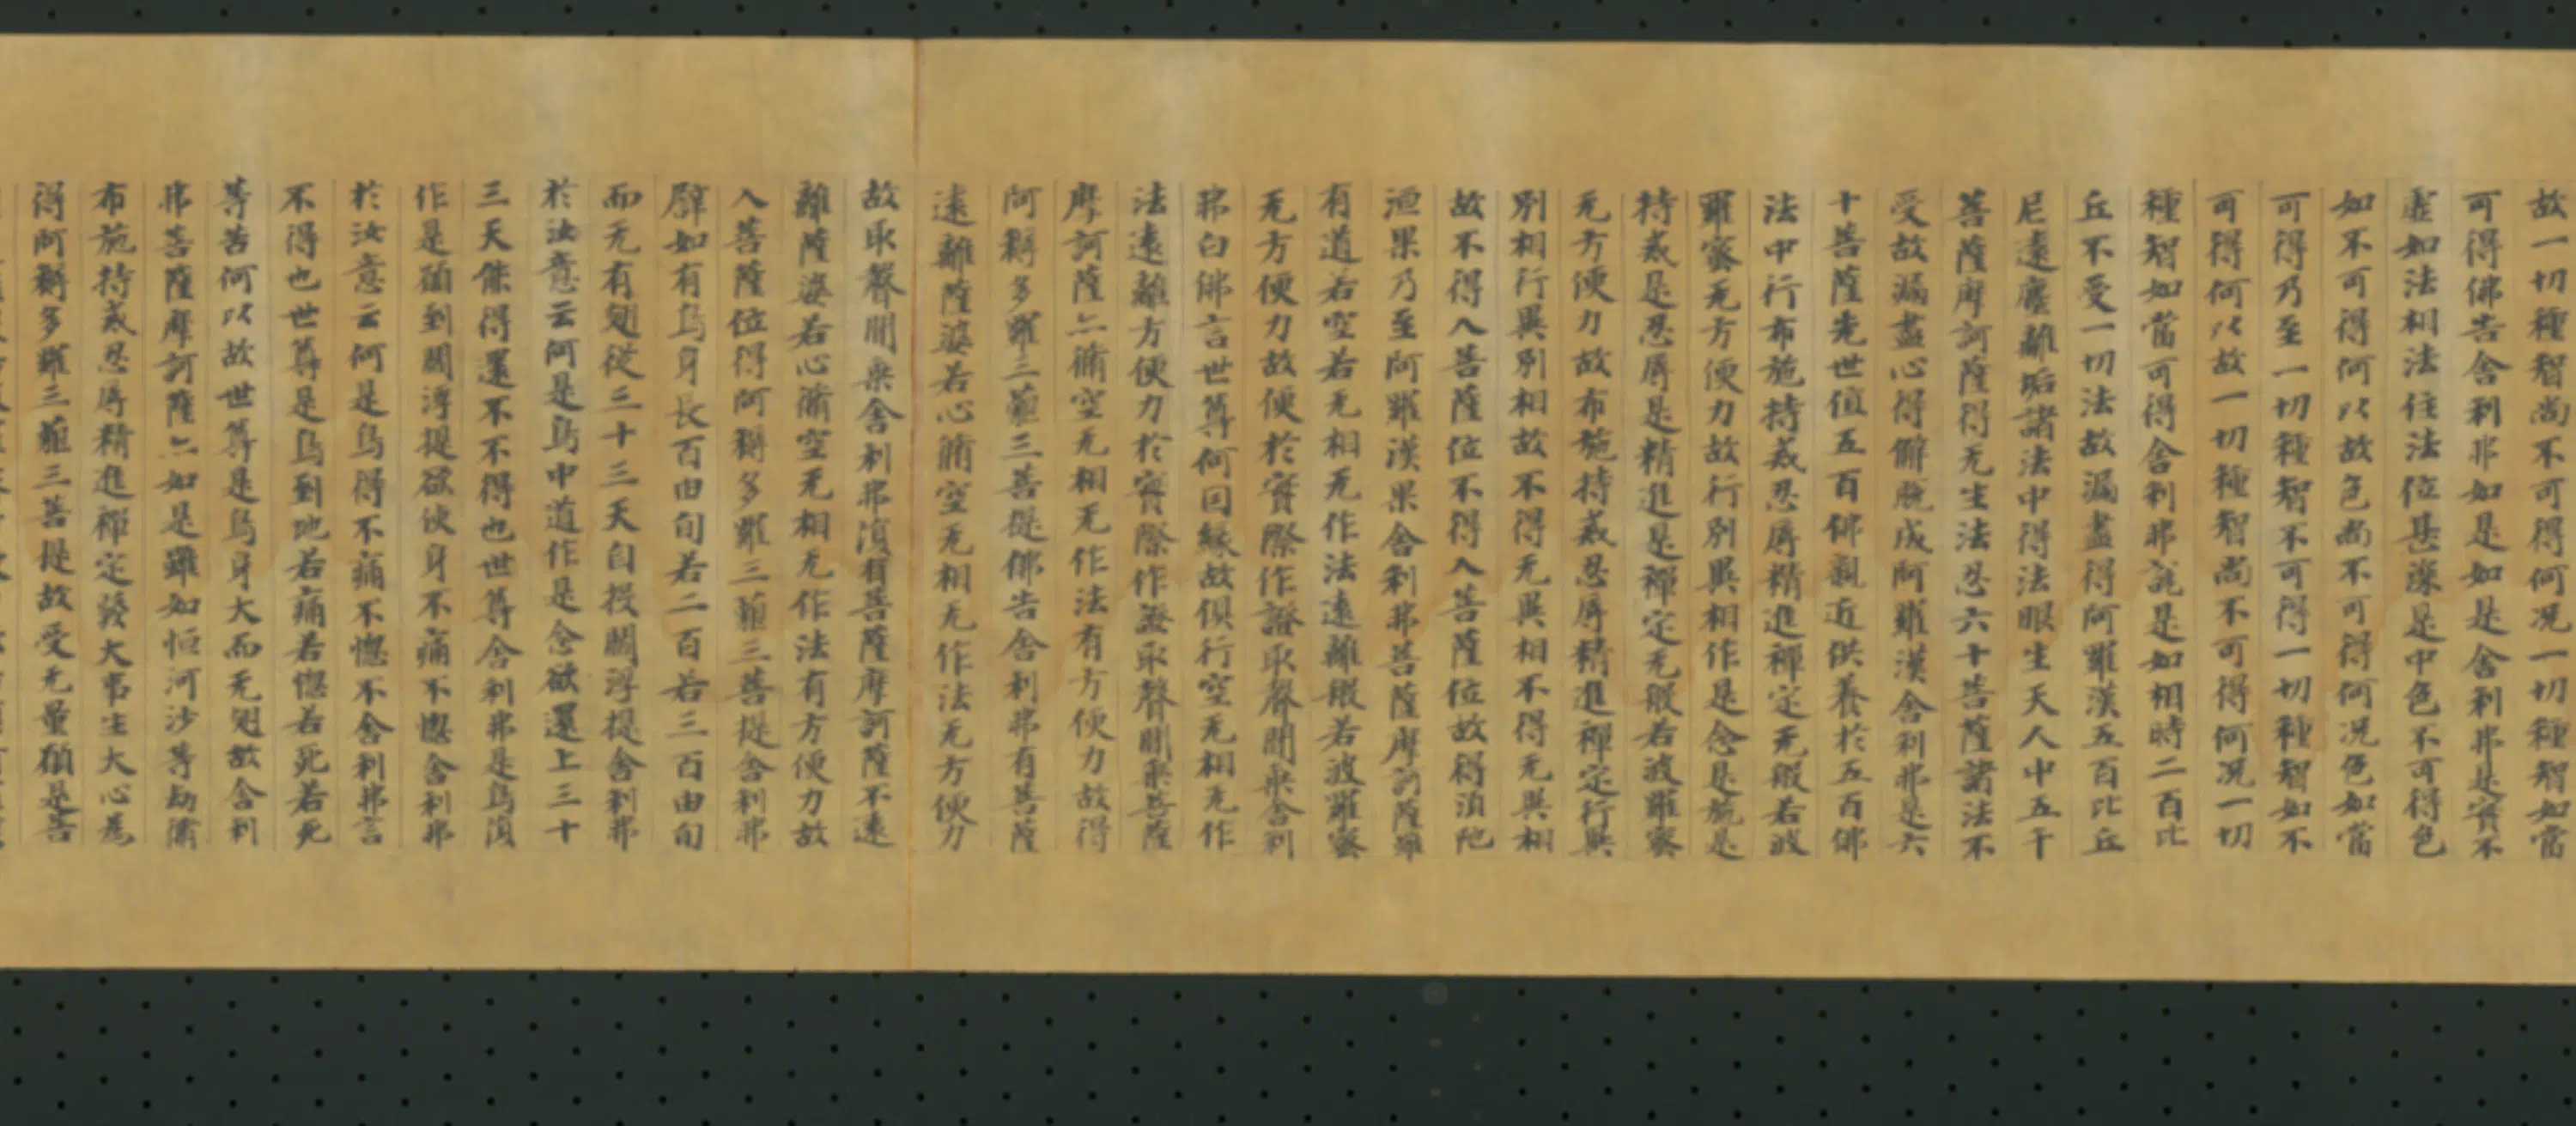 故一切種智尚不可得何况一切種智如當
可得佛告舍利弗如是如是舍利弗是實不
虛如法相法住法位甚深是中色不可得色
如不可得何以故色尚不可得何况色如當
可得乃至一切種智不可得一切種智如不
可得何以故一切種智尚不可得何况一切
種智如當可得舍利弗說是如相時二百比
丘不受一切法故漏盡得阿羅漢五百比丘
尼遠塵離垢諸法中得法眼生天人中五千
菩薩摩訶薩得无生法忍六十菩薩諸法不
受故漏盡心得解脫成阿羅漢舍利弗是六
十菩薩先世值五百佛親近供養於五百佛
法中行布施持戒忍辱精進禪定无般若波
羅蜜无方便力故行別異相作是念是施是
持戒是忍辱是精進是禪定无般若波羅蜜
无方便力故布施持戒忍辱精進禪定行異
別相行異別相故不得无異相不得无異相
故不得入菩薩位不得入菩薩位故得湏陁
洹果乃至阿羅漢果舍利弗菩薩摩訶薩雖
有道若空若无相无作法遠離般若波羅蜜
无方便力故便於實際作證取聲聞乘舍利
弗白佛言世尊何因緣故俱行空无相无作
法遠離方便力於實際作證取聲聞乘菩薩
摩訶薩亦脩空无相无作法有方便力故得
阿耨多羅三藐三菩提佛告舍利弗有菩薩
遠離薩婆若心脩空无相无作法无方便力
故取聲聞乘舍利弗復有菩薩摩訶薩不遠
離薩婆若心脩空无相无作法有方便力故
入菩薩位得阿耨多羅三藐三菩提舍利弗
譬如有鳥身長百由旬若二百若三百由旬
而无有翅從三十三天自投閻浮提舍利弗
於汝意云何是鳥中道作是念欲還上三十
三天能得還不不得也世尊舍利弗是鳥復
作是願到閻浮提欲使身不痛不惱舍利弗
於汝意云何是鳥得不痛不惱不舍利弗言
不得也世尊是鳥到地若痛若惱若死若死
等苦何以故世尊是鳥身大而无翅故舍利
弗菩薩摩訶薩亦如是雖如恒河沙等劫脩
布施持戒忍辱精進禪定發大事生大心為
得阿耨多羅三藐三菩提故受无量願是菩